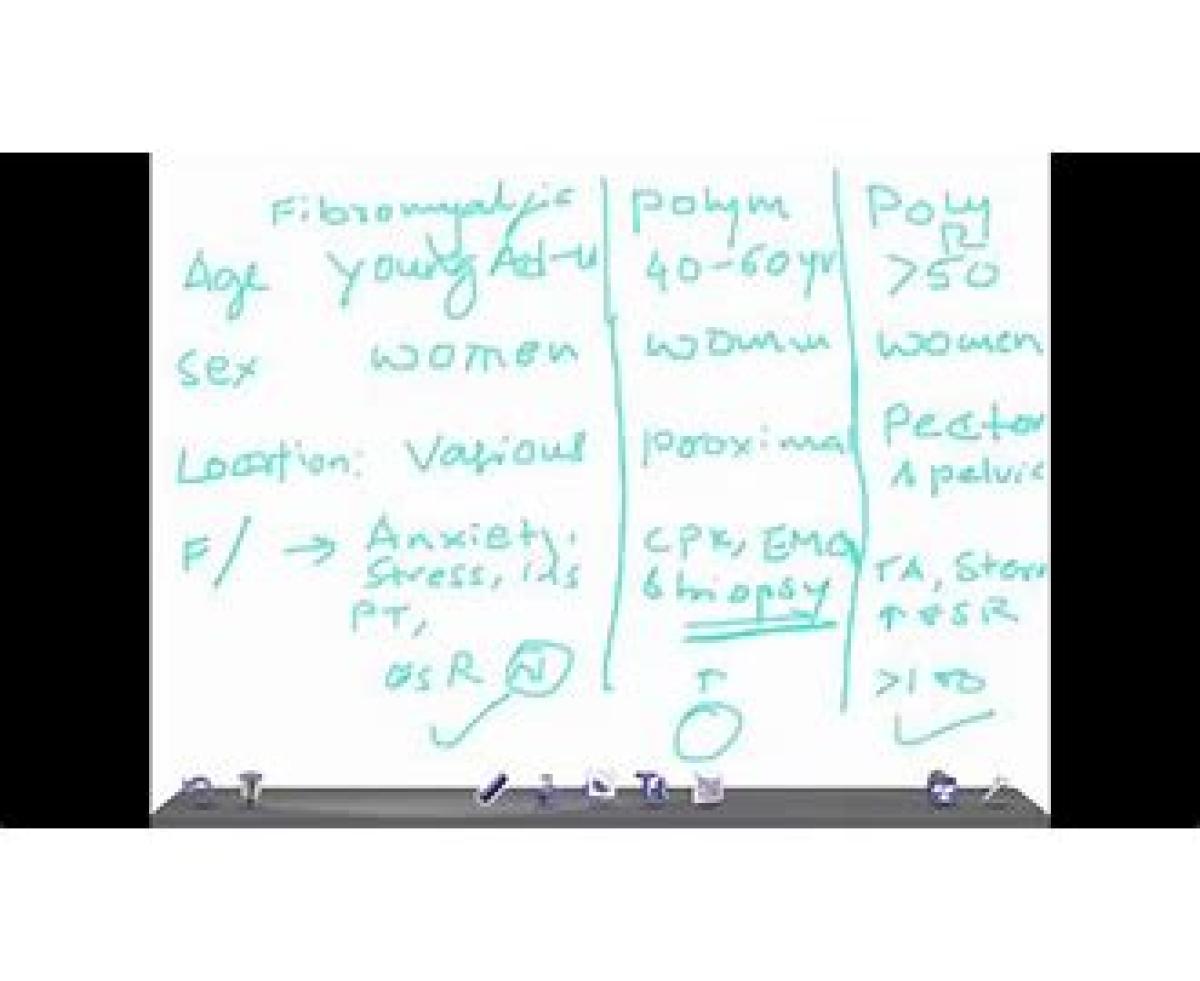 Fibromyalgic Polym Poly R
Age Young Ad-u 40-60yr >50
Sex women women women
Location: Various Proximal Pector
& pelvic
F/ → Anxiety, CPK, EMG TA, Ster
Stress, & biopsy ↑ ESR
PT,
ESR N ↑ >100